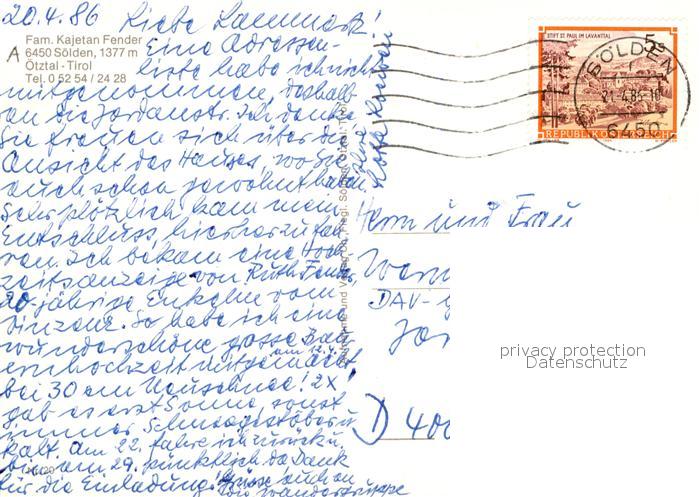 20.4.86 Liebe Laummark!
Fam. Kajetan Fender
6450 Sölden, 1377 m
Ötztal - Tirol
Tel. 0 52 54 / 24 28
A
Eine Adressen-
liste habe ich nicht
mitgenommen, deshalb
an die Jordanstr. Ich denke
Sie freuen sich über die
Ansicht des Hauses, wo Sie
auch schon gewohnt haben
Sehr plötzlich kam mein
Entschluss, hierher zu fah
ren. Ich bekam eine Hoch
zeitsanzeige von Ruth Fender,
20-jährige Enkelin vom
Vinzenz. So habe ich eine
wunderschöne grosse Bau
ernhochzeit mitgemacht
am 12.4.
bei 30 cm Neuschnee! 2x
gab es erst Sonne, sonst
immer Schneegestöber u.
kalt. Am 22. fahre ich zurück u.
bin am 29. pünktlich da. Dank
für die Einladung! Grüsse auch an
die Wandergruppe
Herrn und Frau
DAV-
D 400
STIFT ST. PAUL IM LAVANTTAL
5S
REPUBLIK ÖSTERREICH
SÖLDEN
21.4.86-10
6450
privacy protection
Datenschutz